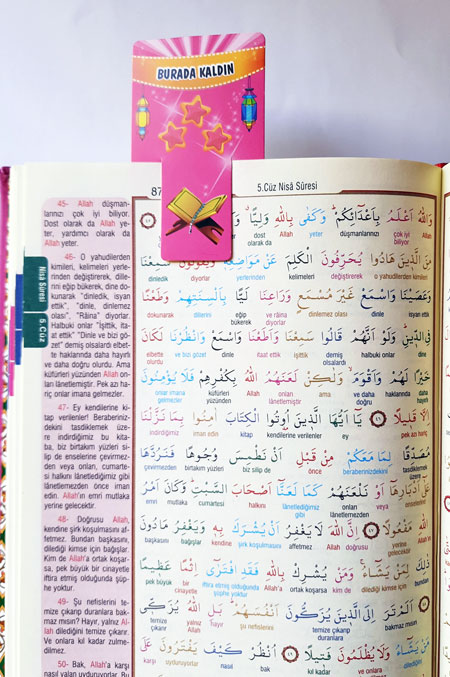 BURADA KALDIN
87
5.Cüz Nisâ Sûresi
Nisâ Sûresi
5. Cüz
45- Allah düşman-
larınızı çok iyi biliyor.
Dost olarak da Allah
yeter, yardımcı olarak da
Allah yeter.
46- O yahudilerden
kimileri, kelimeleri yerle-
rinden değiştirerek, dille-
rini eğip bükerek, dine do-
kunarak "dinledik, isyan
ettik", "dinle, dinlenmez
olası", "Râina" diyorlar.
Halbuki onlar "İşittik, ita-
at ettik" "Dinle ve bizi gö-
zet" demiş olsalardı elbet-
te haklarında daha hayırlı
ve daha doğru olurdu. Ama
küfürleri yüzünden Allah on-
ları lânetlemiştir. Pek azı ha-
riç onlar imana gelmezler.
47- Ey kendilerine ki-
tap verilenler! Beraberiniz-
dekini tasdiklemek üze-
re indirdiğimiz bu kita-
ba, biz birtakım yüzleri silip
de enselerine çevirme-
den veya onları, cumarte-
si halkını lânetlediğimiz gibi
lânetlemezden önce iman
edin. Allah'ın emri mutlaka
yerine gelecektir.
48- Doğrusu Allah,
kendine şirk koşulmasını af-
fetmez. Bundan başkasını,
dilediği kimse için bağışlar.
Kim de Allah'a ortak koşar-
sa, pek büyük bir cinayetle
iftira etmiş olduğunda şüp-
he yoktur.
49- Şu nefislerini te-
mize çıkarıp duranlara bak-
maz mısın? Hayır, yalnız Al-
lah dilediğini temize çıkarır.
Ve onlara kıl kadar zulme-
dilmez.
50- Bak, Allah'a karşı
nasıl yalan uyduruyorlar. Bu
وَاللّٰهُ اَعْلَمُ بِاَعْدَٓائِكُمْ وَكَفٰى بِاللّٰهِ وَلِيًّا
çok iyi biliyor Allah düşmanlarınızı yeter Allah dost olarak da
مِنَ الَّذ۪ينَ هَادُوا يُحَرِّفُونَ الْكَلِمَ عَنْ مَوَاضِعِه۪
o yahudilerden kimileri değiştirerek kelimeleri yerlerinden diyorlar dinledik
وَعَصَيْنَا وَاسْمَعْ غَيْرَ مُسْمَعٍ وَرَاعِنَا لَيًّا بِاَلْسِنَتِهِمْ وَطَعْنًا
isyan ettik dinle dinlenmez olası râina eğip bükerek dillerini dokunarak
فِي الدّ۪ينِ وَلَوْ اَنَّهُمْ قَالُوا سَمِعْنَا وَاَطَعْنَا وَاسْمَعْ وَانْظُرْنَا لَكَانَ
dine halbuki onlar demiş olsalardı işittik itaat ettik dinle ve bizi gözet elbette olurdu
خَيْرًا لَهُمْ وَاَقْوَمَ وَلٰكِنْ لَعَنَهُمُ اللّٰهُ بِكُفْرِهِمْ فَلَا يُؤْمِنُونَ
daha hayırlı haklarında ve daha doğru ama onları lânetlemiştir Allah küfürleri yüzünden onlar imana gelmezler
اِلَّا قَل۪يلًا يَٓا اَيُّهَا الَّذ۪ينَ اُوتُوا الْكِتَابَ اٰمِنُوا بِمَا نَزَّلْنَا
pek azı hariç ey kendilerine verilenler kitap iman edin indirdiğimiz
مُصَدِّقًا لِمَا مَعَكُمْ مِنْ قَبْلِ اَنْ نَطْمِسَ وُجُوهًا فَنَرُدَّهَا
tasdiklemek üzere beraberinizdekini önce biz silip de birtakım yüzleri çevirmeden
عَلٰٓى اَدْبَارِهَٓا اَوْ نَلْعَنَهُمْ كَمَا لَعَنَّٓا اَصْحَابَ السَّبْتِ وَكَانَ اَمْرُ
enselerine veya onları lânetlemezden lânetlediğimiz gibi halkını cumartesi mutlaka emri
اللّٰهِ مَفْعُولًا اِنَّ اللّٰهَ لَا يَغْفِرُ اَنْ يُشْرَكَ بِه۪ وَيَغْفِرُ مَا دُونَ
yerine gelecektir doğrusu Allah affetmez şirk koşulmasını kendine bağışlar başkasını
ذٰلِكَ لِمَنْ يَشَٓاءُ وَمَنْ يُشْرِكْ بِاللّٰهِ فَقَدِ افْتَرٰٓى اِثْمًا عَظ۪يمًا
bundan dilediği kimse için kim de ortak koşarsa Allah'a iftira etmiş olduğunda şüphe yoktur bir cinayetle pek büyük
اَلَمْ تَرَ اِلَى الَّذ۪ينَ يُزَكُّونَ اَنْفُسَهُمْ بَلِ اللّٰهُ يُزَكّ۪ي
bakmaz mısın temize çıkarıp duranlara şu nefislerini hayır yalnız Allah temize çıkarır
مَنْ يَشَٓاءُ وَلَا يُظْلَمُونَ فَت۪يلًا اُنْظُرْ كَيْفَ يَفْتَرُونَ عَلَى
dilediğini ve onlara zulmedilmez kıl kadar bak nasıl uyduruyorlar karşı